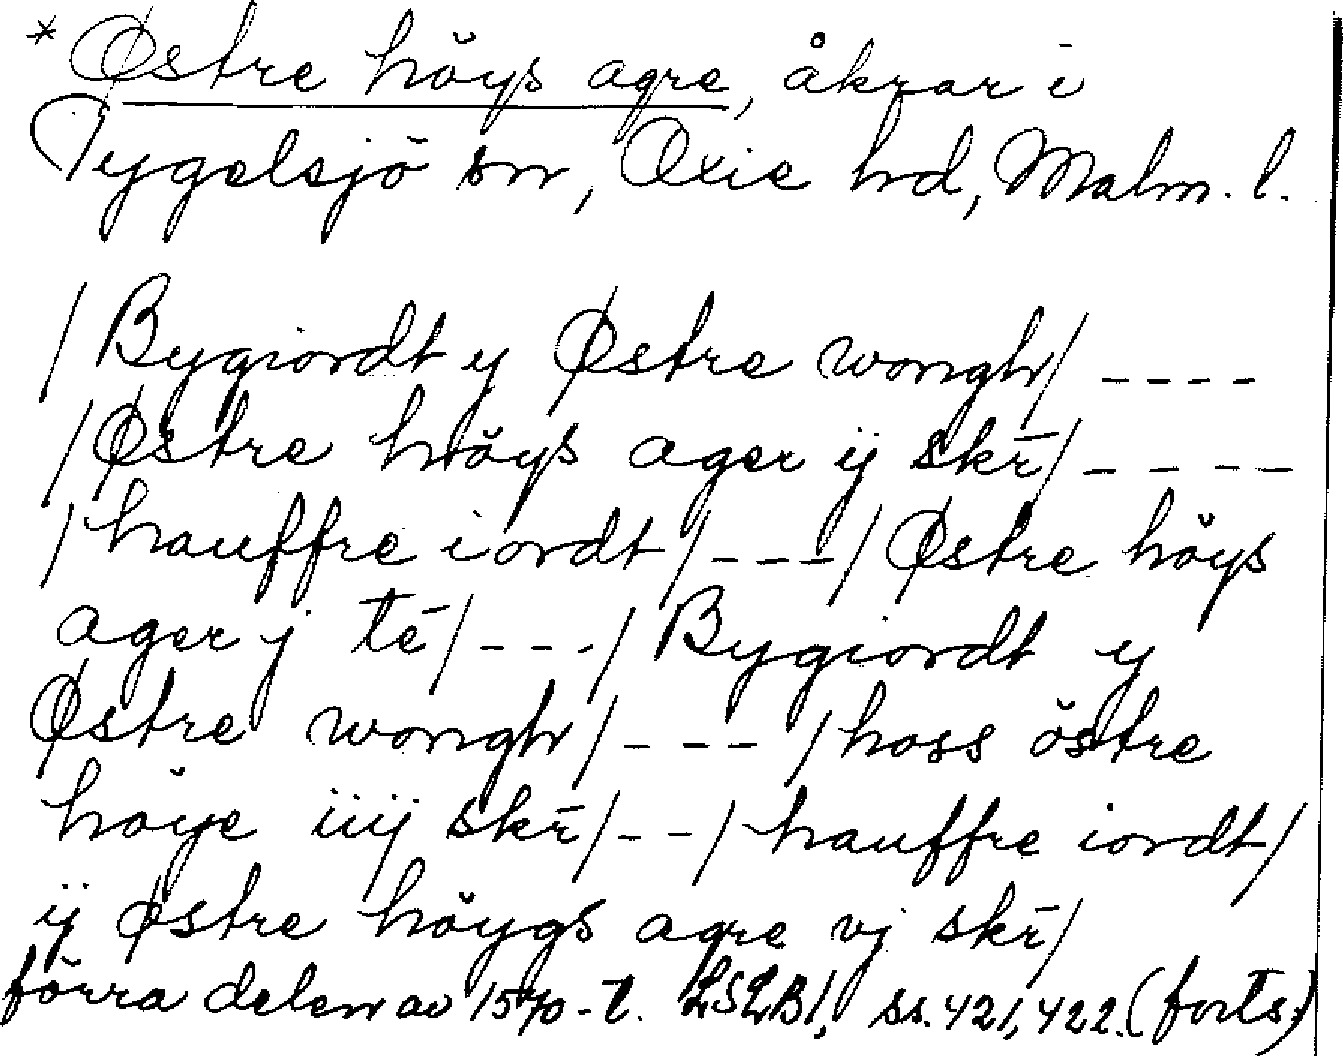 * Østre höys agre, åkrar i
Tygelsjö sn, Oxie hd, Malm. l.
/Bygiordt y Østre wongh/ ----
/Østre höys ager ij skr̄/ ----
/hauffre iordt/ ---/ Østre höys
ager j tē/ ---/ Bygiordt y
Østre wongh/ --- /hoss östre
höye iiij skr̄/ --/ hauffre iordt/
ij østre höygs agre vj skr̄/
förra delen av 1570-t. LSLB1, ss. 421, 422. (forts.)